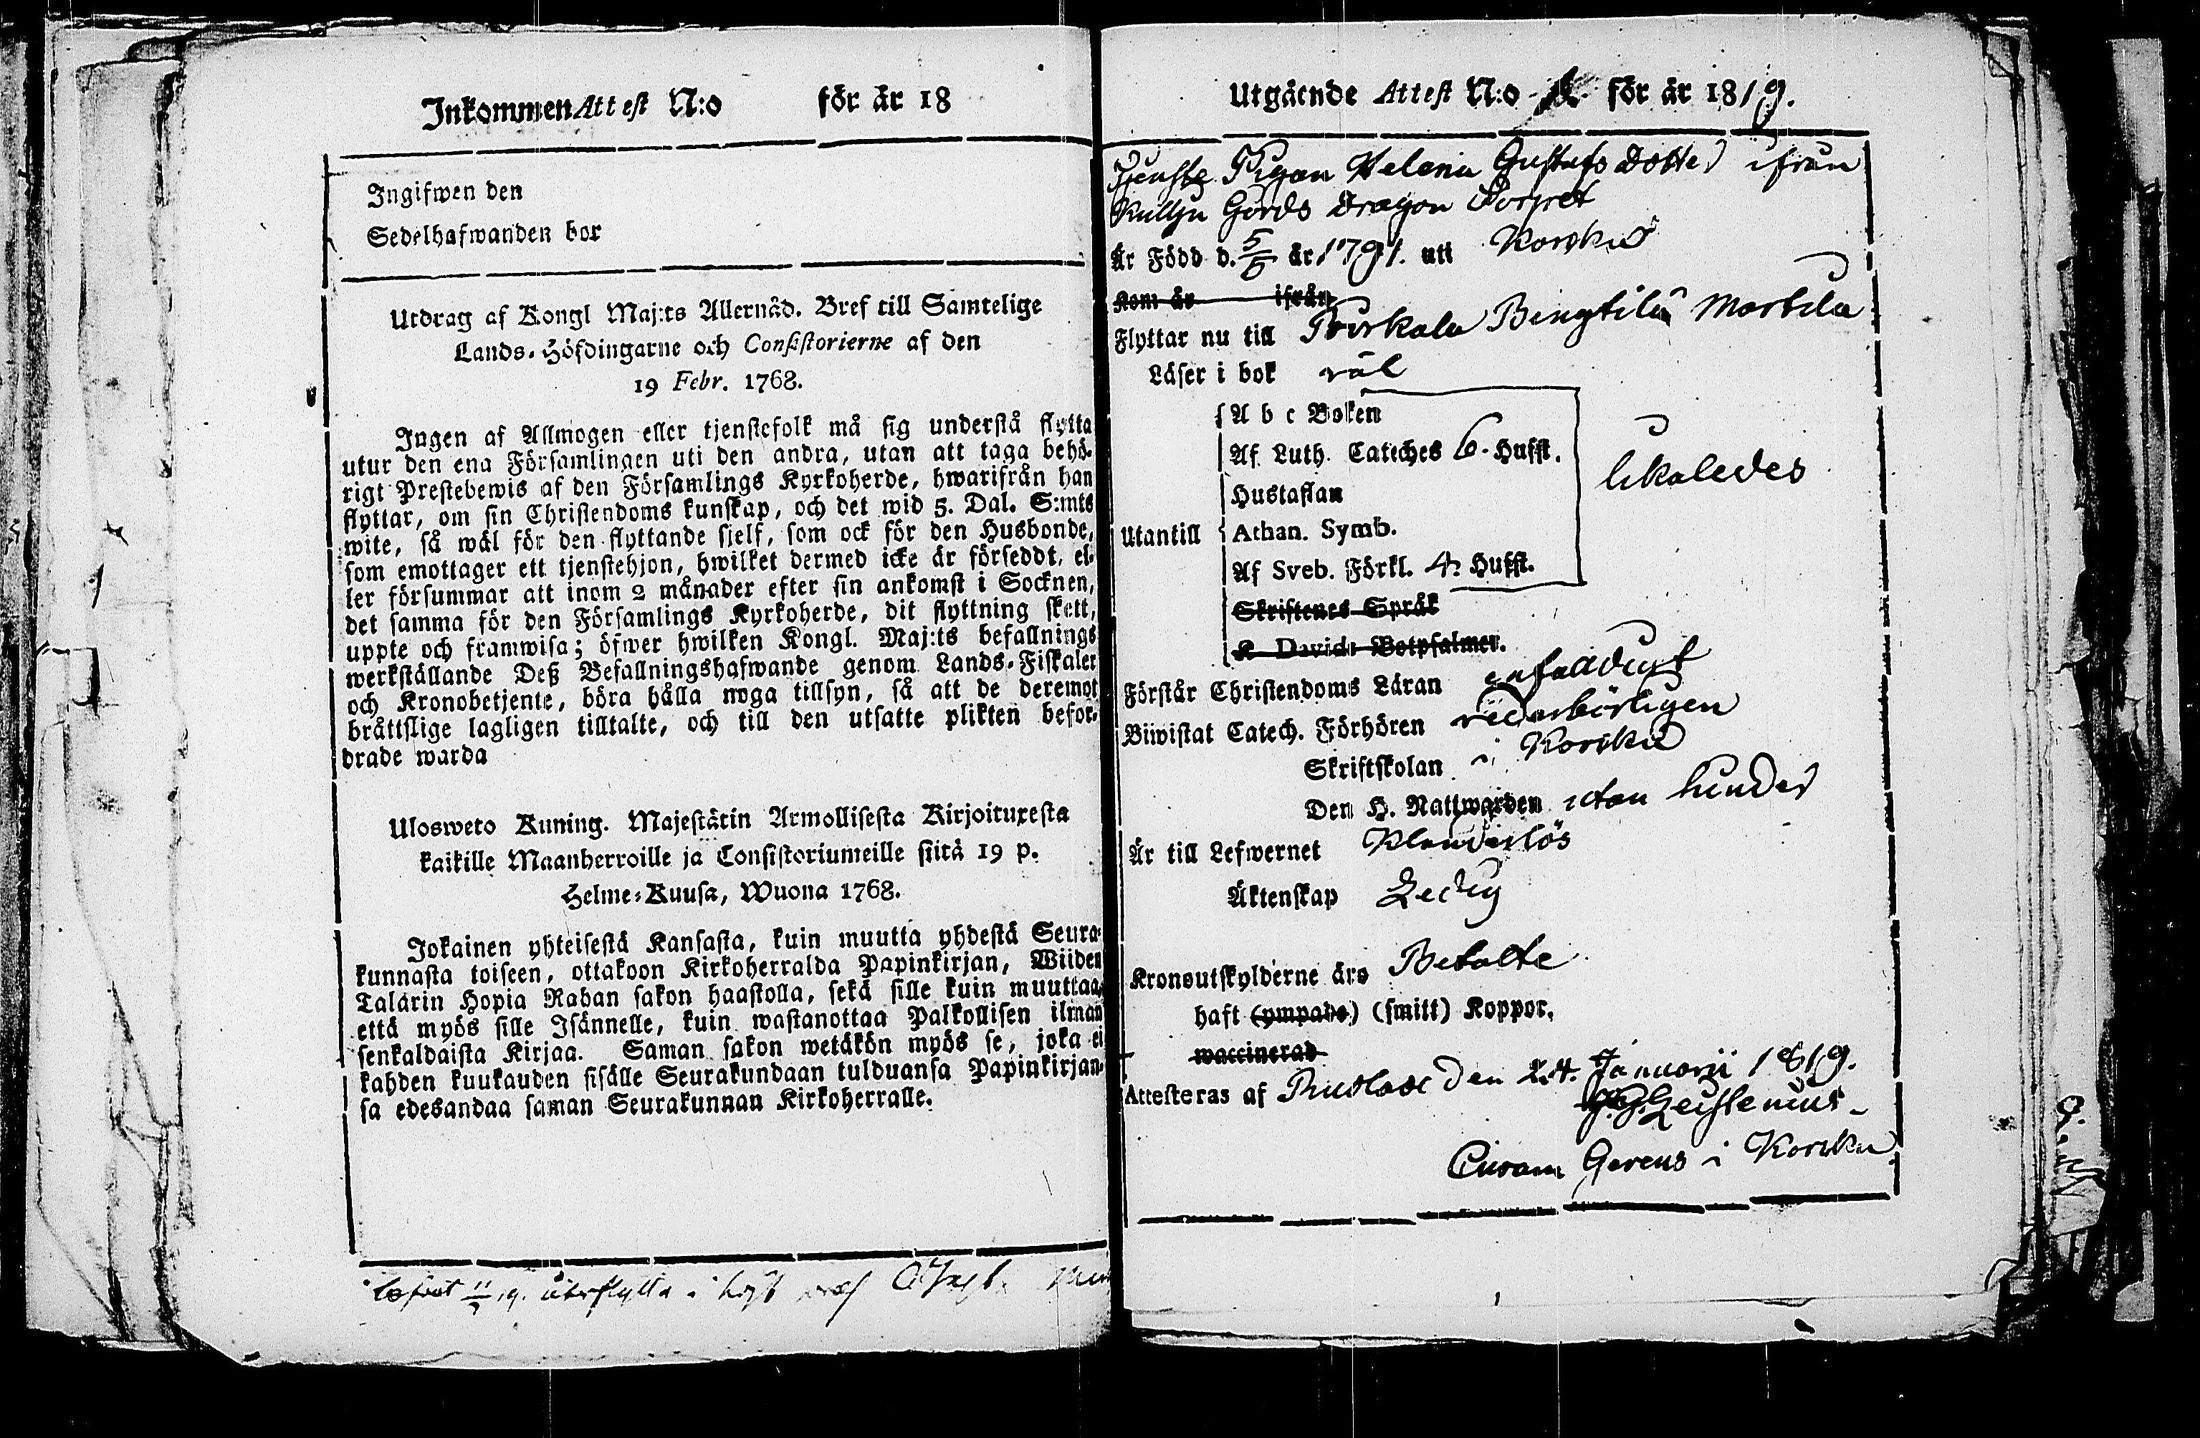 Inkommen Attest N:o för år 18
Ingifwen den
Sedelhafwanden bor
Utdrag af Kongl Maj:ts Allernåd. Bref till Samtelige
Lands-Höfdingarne och Consistorierne af den
19 Febr. 1768.
Ingen af Allmogen eller tjenstefolk må sig understå flytta
utur den ena Församlingen uti den andra, utan att taga behö-
rigt Prestebewis af den Församlings Kyrkoherde, hwarifrån han
flyttar, om sin Christendoms kunskap, och det wid 5. Dal. S:mts
wite, så wäl för den flyttande sjelf, som ock för den Husbonde,
som emottager ett tjenstehjon, hwilket dermed icke är förseddt, el-
ler försummar att inom 2 månader efter sin ankomst i Socknen,
det samma för den Församlings Kyrkoherde, dit flyttning skett,
uppte och framwisa; öfwer hwilken Kongl. Maj:ts befallnings
werkställande Deß Befallningshafwande genom Lands-Fiskaler
och Kronobetjente, böra hålla noga tillsyn, så att de deremot
bråttslige lagligen tilltalte, och till den utsatte plikten befor-
drade warda
Ulosweto Kuning. Majestätin Armollisesta Kirjoituxesta
kaikille Maanherroille ja Consistoriumeille siitä 19 p.
Helme-Kuusa, Wuona 1768.
Jokainen yhteisestä Kansasta, kuin muutta yhdestä Seura-
kunnasta toiseen, ottakoon Kirkoherralda Papinkirjan, Wiiden
Talarin Hopia Rahan sakon haastolla, sekä sille kuin muuttaa,
että myös sille Isännelle, kuin wastanottaa Palkollisen ilman
senkaldaista Kirjaa. Saman sakon wetäkön myös se, joka ei
kahden kuukauden sisälle Seurakundaan tulduansa Papinkirjan-
sa edesandaa saman Seurakunnan Kirkoherralle.
Utgående Attest N:o för år 1819.
Tjenste Pigan Helena Gustafs Dotter ifrån
Gårds Dragon Torpet
Är Född d. 5/5 år 1791. uti Koriskus
Kom år ifrån
Flyttar nu till Pirkala Bengtilä Mattila
Läser i bok väl
A b c Boken
Af Luth. Cateches 6 Hufst.
Hustaflan
likaledes
Utantill Athan. Symb.
Af Sveb. Förkl. 4 Hufst.
Skriftenes Språk
K Davids Botpsalmer.
Förstår Christendoms Läran enfaldigt
Biwistat Catech. Förhören vederbörligen
Skriftskolan i
Den H. Nattwarden utan hinder
Är till Lefwernet Klanderlös
Äktenskap Ledig
Kronoutskylderne äro Betalte
haft (ympade) (smitt) Koppor.
waccinerad
Attesteras af den 24. Januarii 1819.
Curam Gerens i